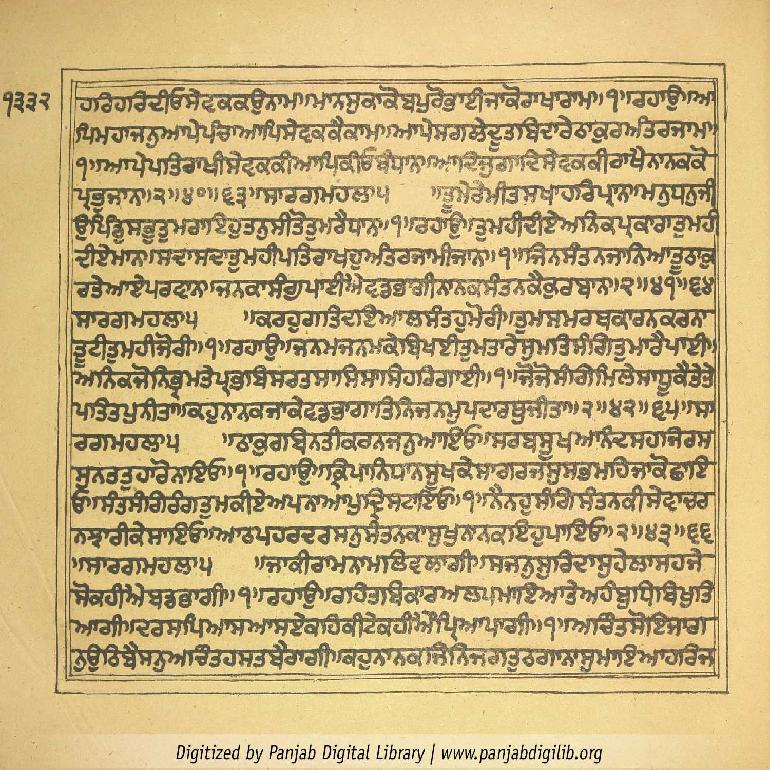 ੧੩੩੨
ਹਰਿਹਰਿਦੀਓਸੇਵਕਕਉਨਾਮ॥ਮਾਨਸੁਕਾਕੋਬਪੁਰੋਭਾਈਜਾਕੋਰਾਖਾਰਾਮ॥੧॥ਰਹਾਉ॥ਆ
ਪਿਮਹਾਜਨੁਆਪੇਪੰਚਾਆਪਿਸੇਵਕਕੈਕਾਮ॥ਆਪੇਸਗਲੇਦੂਤਬਿਦਾਰੇਠਾਕੁਰਅੰਤਰਿਜਾਮ॥
੧॥ਆਪੇਪਤਿਰਾਖੀਸੇਵਕਕੀਆਪਿਕੀਓਬੰਧਾਨ॥ਆਦਿਜੁਗਾਦਿਸੇਵਕਕੀਰਾਖੈਨਾਨਕਕੋ
ਪ੍ਰਭੁਜਾਨ॥੨॥੪੦॥੬੩॥ਸਾਰਗਮਹਲਾ੫ ॥ਤੂਮੇਰੇਮੀਤਸਖਾਹਰਿਪ੍ਰਾਨ॥ਮਨੁਧਨੁਜੀ
ਉਪਿੰਡੁਸਭੁਤੁਮਰਾਇਹੁਤਨੁਸੀਤੋਤੁਮਰੈਧਾਨ॥੧॥ਰਹਾਉ॥ਤੁਮਹੀਦੀਏਅਨਿਕਪ੍ਰਕਾਰਾਤੁਮਹੀ
ਦੀਏਮਾਨ॥ਸਦਾਸਦਾਤੁਮਹੀਪਤਿਰਾਖਹੁਅੰਤਰਜਾਮੀਜਾਨ॥੧॥ਜਿਨਸੰਤਨਜਾਨਿਆਤੂਠਾਕੁ
ਰਤੇਆਏਪਰਵਾਨ॥ਜਨਕਾਸੰਗੁਪਾਈਐਵਡਭਾਗੀਨਾਨਕਸੰਤਨਕੈਕੁਰਬਾਨ॥੨॥੪੧॥੬੪
ਸਾਰਗਮਹਲਾ੫ ॥ਕਰਹੁਗਤਿਦਇਆਲਸੰਤਹੁਮੋਰੀ॥ਤੁਮਸਮਰਥਕਾਰਨਕਰਨਾ
ਤੂਟੀਤੁਮਹੀਜੋਰੀ॥੧॥ਰਹਾਉ॥ਜਨਮਜਨਮਕੇਬਿਖਈਤੁਮਤਾਰੇਸੁਮਤਿਸੰਗਿਤੁਮਾਰੈਪਾਈ॥
ਅਨਿਕਜੋਨਿਭ੍ਰਮਤੇਪ੍ਰਭਬਿਸਰਤਸਾਸਿਸਾਸਿਹਰਿਗਾਈ॥੧॥ਜੋਜੋਸੰਗਿਮਿਲੇਸਾਧੂਕੈਤੇਤੇ
ਪਤਿਤਪੁਨੀਤਾ॥ਕਹੁਨਾਨਕਜਾਕੇਵਡਭਾਗਾਤਿਨਿਜਨਮੁਪਦਾਰਥੁਜੀਤਾ॥੨॥੪੨॥੬੫॥ਸਾ
ਰਗਮਹਲਾ੫ ॥ਠਾਕੁਰਬਿਨਤੀਕਰਨਜਨੁਆਇਓ॥ਸਰਬਸੂਖਆਨੰਦਸਹਜਰਸ
ਸੁਨਤਤੁਹਾਰੋਨਾਇਓ॥੧॥ਰਹਾਉ॥ਕ੍ਰਿਪਾਨਿਧਾਨਸੂਖਕੇਸਾਗਰਜਸੁਸਭਮਹਿਜਾਕੋਛਾਇ
ਓ॥ਸੰਤਸੰਗਿਰੰਗਤੁਮਕੀਏਅਪਨਾਆਪੁਦ੍ਰਿਸਟਾਇਓ॥੧॥ਨੈਨਹੁਸੰਗਿਸੰਤਨਕੀਸੇਵਾਚਰ
ਨਝਾਰੀਕੇਸਾਇਓ॥ਆਠਪਹਰਦਰਸਨੁਸੰਤਨਕਾਸੁਖੁਨਾਨਕਇਹੁਪਾਇਓ॥੨॥੪੩॥੬੬
॥ਸਾਰਗਮਹਲਾ੫ ॥ਜਾਕੀਰਾਮਨਾਮਲਿਵਲਾਗੀ॥ਸਜਨੁਸੁਰਿਦਾਸੁਹੇਲਾਸਹਜੇ
ਸੋਕਹੀਐਬਡਭਾਗੀ॥੧॥ਰਹਾਉ॥ਰਹਿਤਬਿਕਾਰਅਲਪਮਾਇਆਤੇਅਹੰਬੁਧਿਬਿਖੁਤਿ
ਆਗੀ॥ਦਰਸਪਿਆਸਆਸਏਕਹਿਕੀਟੇਕਹੀਐਂਪ੍ਰਿਅਪਾਗੀ॥੧॥ਅਚਿੰਤਸੋਇਜਾਗ
ਨੁਉਠਿਬੈਸਨੁਅਚਿੰਤਹਸਤਬੈਰਾਗੀ॥ਕਹੁਨਾਨਕਜਿਨਿਜਗਤੁਠਗਾਨਾਸੁਮਾਇਆਹਰਿਜ
Digitized by Panjab Digital Library | www.panjabdigilib.org